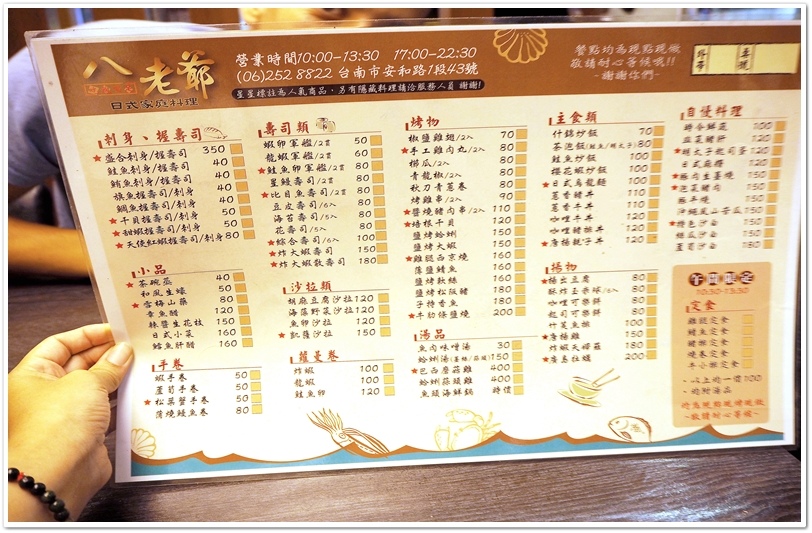 八老爺
日式家庭料理
營業時間10:00-13:30 17:00-22:30
(06)252 8822 台南市安和路1段43號
星星標註為人氣商品,另有隱藏料理請洽服務人員 謝謝!
餐點均為現點現做
敬請耐心等候呦!!
~謝謝你們~
外帶
桌號
刺身、握壽司
★盛合刺身/握壽司 350
鮭魚刺身/握壽司 40
鮪魚刺身/握壽司 40
旗魚握壽司/刺身 40
鯛魚握壽司/刺身 50
★干貝握壽司/刺身 50
★甜蝦握壽司/刺身 50
★天使紅蝦握壽司/刺身 80
小品
★茶碗蒸 40
和風生蠔 50
★雪梅山藥 80
章魚醋 80
辣醬生花枝 150
日式小菜 160
鱈魚肝醋 160
手卷
蝦手卷 50
蘆筍手卷 50
★松葉蟹手卷 50
蒲燒鰻魚卷 80
壽司類
蝦卵軍艦/2貫 50
龍蝦軍艦/2貫 60
★鮭魚卵軍艦/2貫 80
星鰻壽司/2貫 80
★比目魚壽司/2貫 80
豆皮壽司/6入 50
海苔壽司/5入 50
花壽司/5入 50
★綜合壽司/6入 100
★炸大蝦壽司 150
★炸大蝦散壽司 180
沙拉類
胡麻豆腐沙拉 120
海藻野菜沙拉 120
魚卵沙拉 120
★凱薩沙拉 150
蘿蔓卷
炸蝦 100
龍蝦 100
鮭魚卵 120
烤物
椒鹽雞翅/2入 70
★手工雞肉丸/2入 80
櫛瓜/2入 80
青龍椒/2入 80
秋刀青蔥卷 80
烤雞串/2入 90
★醬燒豬肉串/2入 110
★培根干貝 120
鹽烤蛤蜊 150
鹽烤大蝦 150
★雞腿西京燒 160
薄鹽鯖魚 160
鹽烤軟絲 160
鹽烤松阪豬 160
子持香魚 180
★牛肋條鹽燒 200
湯品
魚肉味噌湯 30
蛤蜊湯(薑絲/蒜頭) 150
★巴西蘑菇雞 400
★蛤蜊蒜頭雞 400
魚頭海鮮鍋 時價
主食類
什錦炒飯 70
茶泡飯(鮭魚/明太子) 80
鮭魚炒飯 100
櫻花蝦炒飯 100
★日式烏龍麵 100
蔥香豬丼 110
蔥香牛丼 120
咖哩牛丼 120
咖哩豬排丼 120
★唐揚親子丼 120
揚物
★揚出豆腐 80
酥炸玉米球/6入 80
咖哩可樂餅 80
起司可樂餅 80
竹筴魚排 100
★唐揚雞 150
炸蝦天婦羅 180
★廣島牡蠣 200
自慢料理
時令鮮蔬 100
韭菜豬肝 100
★明太子起司蛋 120
日式麻糬 120
★豚肉生薑燒 150
★泡菜豬肉 150
豚平燒 150
沖繩風山苦瓜 150
★特色沙白 150
絲瓜沙白 150
蘆筍沙白 180
午間限定
10:30-13:30
定食
雞腿定食
鯖魚定食
豬排定食
燒卷定食
牛小排定食
、以上均一價100
、均附湯品
均為現點現烤現做
~敬請耐心等候~